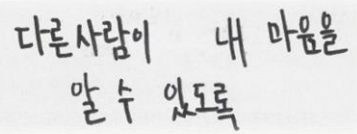 다른 사람이 내 마음을
알 수 있도록